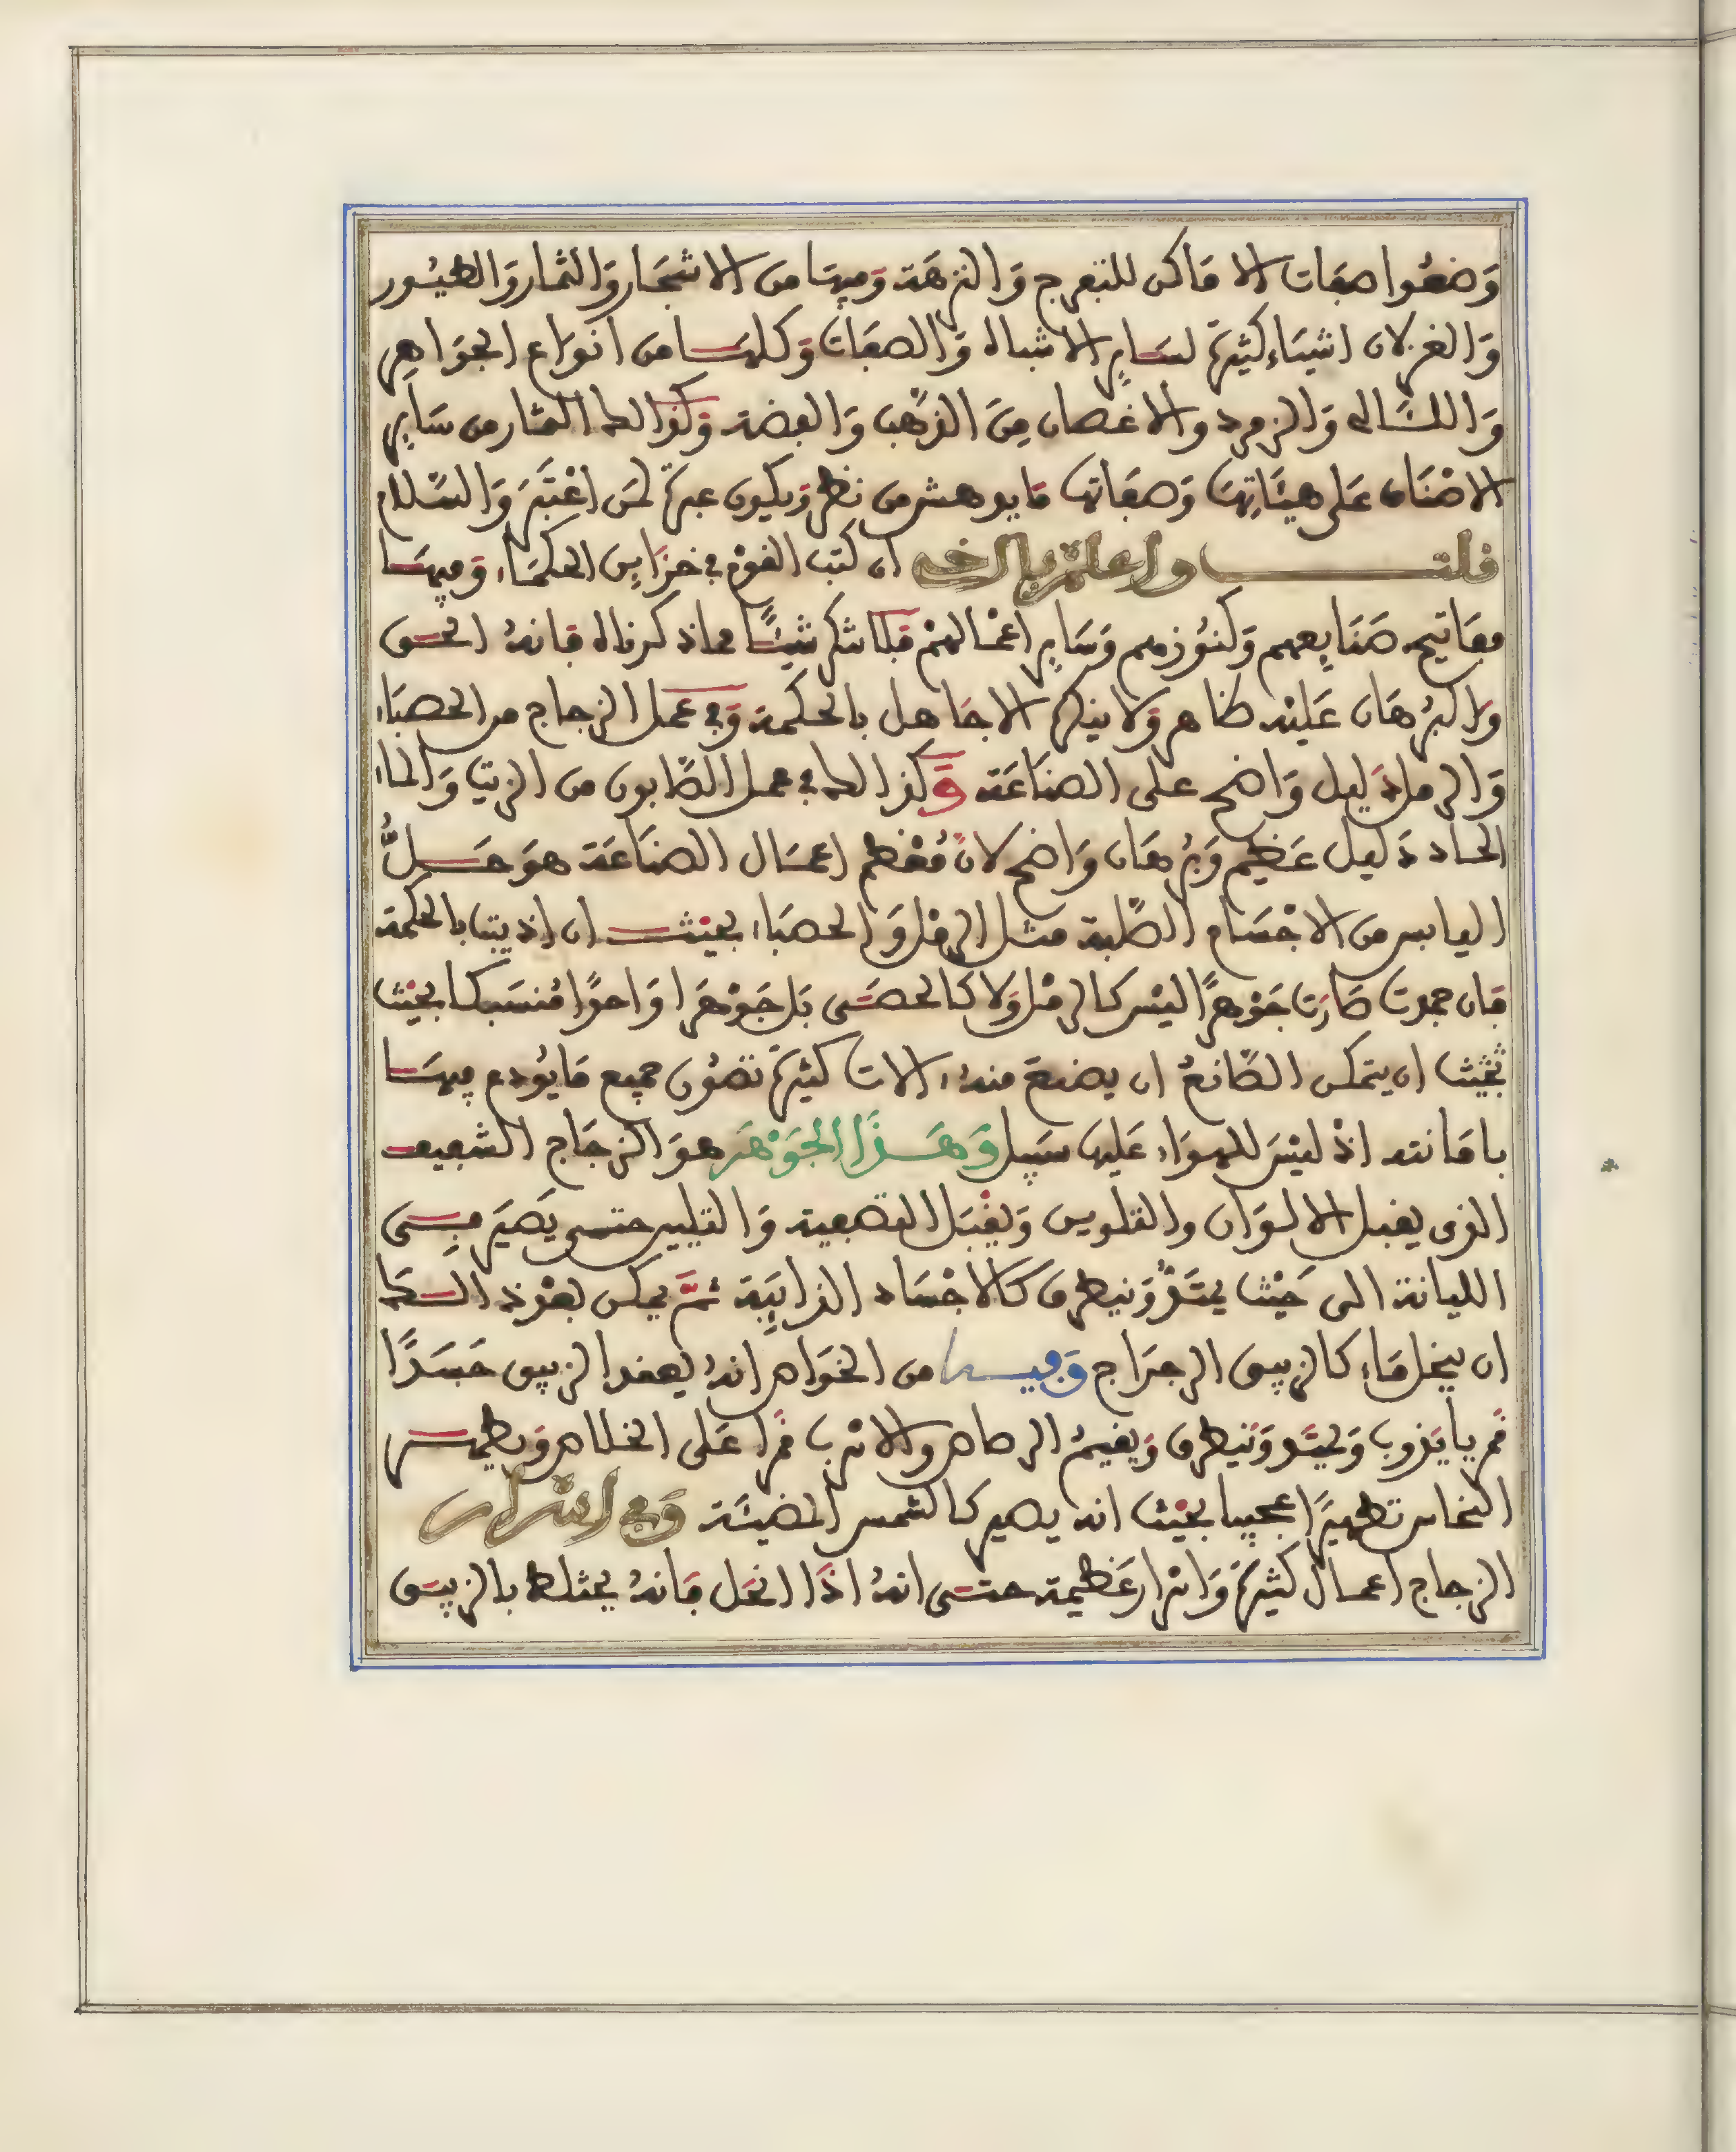 وَضعُوا صفات الا مَاكن للتفرج وَالنزهَة وَفيهَا من الاشجَار وَالثمار وَالطيُور
وَالغزلان اشيَاء كثيرَة لسَايِر الاشباه وَالصفَات وَكلهَا من انوَاع الجوَاهِر
وَاللئالى وَالزمرد والاغصان مِنَ الذهَب وَالفضة وَكذالك الثمار من سَايِر
الاصْنَاف عَلى هيئَاتِهَا وَصفَاتها مَا يوهش من نظر وَيكون عبرَة لمَن اعْتَبَرَ وَالسَّلام
قلت واعلم يا اخى ان كتب القوْم فى خزَاين الحكمَاء وَفيهَا
مفَاتيح صَنَايعهم وَكنوُزهم وَسَاير اعْمالهمْ فلا تنكر شيْئًا مما ذكرناه فانهُ الحق
وَالبُرهَان عَليْه ظاهر وَلا ينكره الا جَاهل بالحكمة وَفى عَمل الزجاج من الحصبَاء
وَالرمل دَليل وَاضح على الصنَاعَة وَكذالك فى عمل الصَّابون من الزيت وَالماء
الحاد دَليل عَظيم وَبُرهَان وَاضح لانَّ مُعْظم اعمَال الصنَاعَة هوَ حَلُّ
اليابس من الاجْسَام الصَّلبة مثل الرمْل وَالحصبَاء بحيْث ان اذيبت بالحكمة
فان جمدت صَارَت جَوْهرًا ليْس كالرمْل وَلا كالحصَى بَل جَوْهَرا وَاحدًا مُنسَبكا بحيْث
بحَيْث ان يتمكن الصَّانعُ ان يصْنعَ منهُ الات كثيرَة تصُون جميع مَا يُودع فيهَا
بامَانته اذْ ليْسَ للهوَاء عَليها سَبيل وَهَذَا الجَوْهَر هوَ الزجَاج الشفيف
الذى يقبل الالوَان والتلوين وَيقْبَل التصفية وَالتليين حتى يَصيَر فِى
الليانة الى حَيْث يمتَدُّ وَينطرق كالاجْسَاد الذايِبَة ثمَّ يمكن بعْد ذالك
ان ينحل مَاء كالزيبق الرجرَاج وَفيه من الخوَاص انهُ يعقد الزيبق جَسَدًا
قمريا يَذوب وَيمتد وَينطرق وَيقيمُ الرصاص والاسْرب قمرًا عَلى الخلاص وَيطهر
النحاس تطهيرًا عجيبا بحيْث انه يصير كالشمس المضيئَة وَفى اسْرار
الزجاج اعمال كثيرَة وَاسْرار عَظيمة حتى انهُ اذَا انحَل فانهُ يختلط بالزيبق